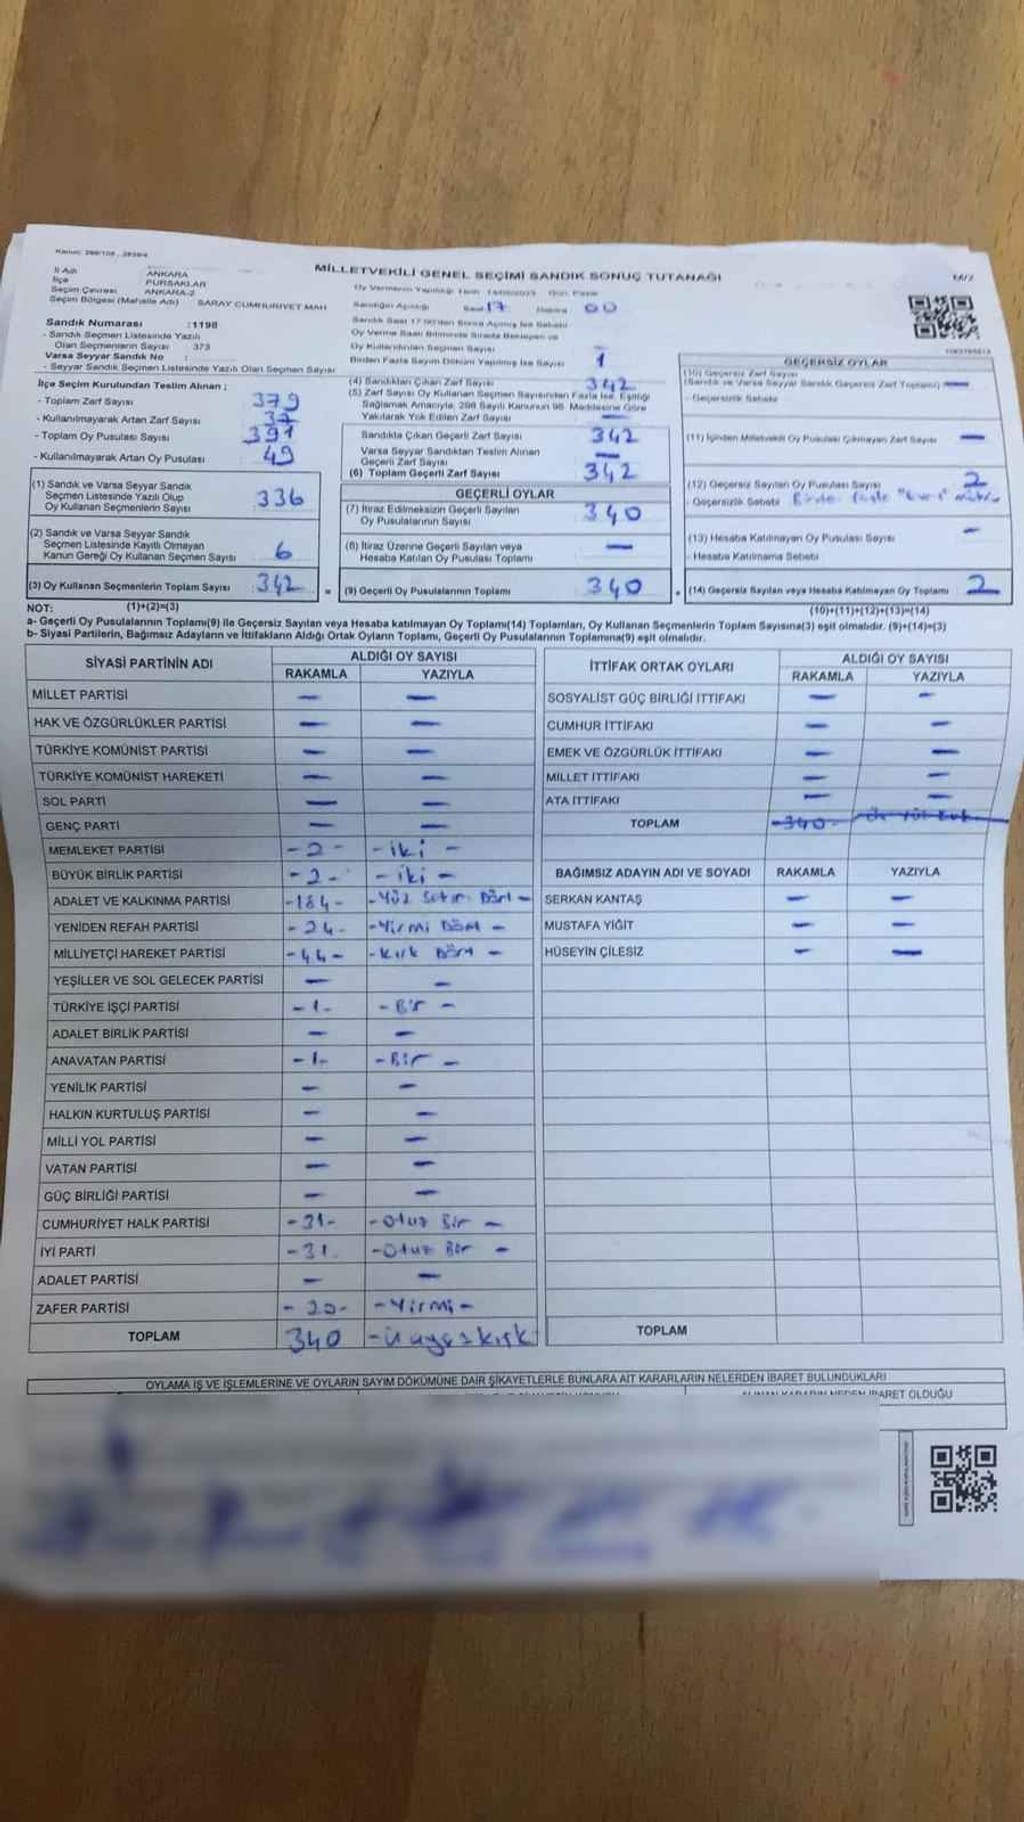 MİLLETVEKİLİ GENEL SEÇİMİ SANDIK SONUÇ TUTANAĞI
İl Adı ANKARA
İlçe PURSAKLAR
Seçim Çevresi ANKARA-2
Seçim Bölgesi (Mahalle Adı) SARAY CUMHURİYET MAH
Sandık Numarası :1198
- Sandık Seçmen Listesinde Yazılı
Olan Seçmenlerin Sayısı : 373
Varsa Seyyar Sandık No :
- Seyyar Sandık Seçmen Listesinde Yazılı Olan Seçmen Sayısı
İlçe Seçim Kurulundan Teslim Alınan ;
- Toplam Zarf Sayısı 379
- Kullanılmayarak Artan Zarf Sayısı 37
- Toplam Oy Pusulası Sayısı 391
- Kullanılmayarak Artan Oy Pusulası 49
(1) Sandık ve Varsa Seyyar Sandık
Seçmen Listesinde Yazılı Olup
Oy Kullanan Seçmenlerin Sayısı 336
(2) Sandık ve Varsa Seyyar Sandık
Seçmen Listesinde Kayıtlı Olmayan
Kanun Gereği Oy Kullanan Seçmen Sayısı 6
(3) Oy Kullanan Seçmenlerin Toplam Sayısı 342
Saat 17 00
Birden Fazla Sayım Döküm Yapılmış İse Sayısı 1
(4) Sandıktan Çıkan Zarf Sayısı 342
(5) Zarf Sayısı Oy Kullanan Seçmen Sayısından Fazla İse, Eşitliği
Sağlamak Amacıyla, 298 Sayılı Kanunun 98. Maddesine Göre
Yakılarak Yok Edilen Zarf Sayısı —
Sandıkta Çıkan Geçerli Zarf Sayısı 342
Varsa Seyyar Sandıktan Teslim Alınan
Geçerli Zarf Sayısı —
(6) Toplam Geçerli Zarf Sayısı 342
GEÇERLİ OYLAR
(7) İtiraz Edilmeksizin Geçerli Sayılan
Oy Pusulalarının Sayısı 340
(8) İtiraz Üzerine Geçerli Sayılan veya
Hesaba Katılan Oy Pusulası Toplamı —
= (9) Geçerli Oy Pusulalarının Toplamı 340
GEÇERSİZ OYLAR
(10) Geçersiz Zarf Sayısı
(Sandık ve Varsa Seyyar Sandık Geçersiz Zarf Toplamı) —
- Geçersizlik Sebebi
(11) İçinden Milletvekili Oy Pusulası Çıkmayan Zarf Sayısı —
(12) Geçersiz Sayılan Oy Pusulası Sayısı 2
- Geçersizlik Sebebi "Evet"
(13) Hesaba Katılmayan Oy Pusulası Sayısı —
- Hesaba Katılmama Sebebi
(14) Geçersiz Sayılan veya Hesaba Katılmayan Oy Toplamı 2
NOT: (1)+(2)=(3) (10)+(11)+(12)+(13)=(14)
a- Geçerli Oy Pusulalarının Toplamı(9) ile Geçersiz Sayılan veya Hesaba katılmayan Oy Toplamı(14) Toplamları, Oy Kullanan Seçmenlerin Toplam Sayısına(3) eşit olmalıdır. (9)+(14)=(3)
b- Siyasi Partilerin, Bağımsız Adayların ve İttifakların Aldığı Ortak Oyların Toplamı, Geçerli Oy Pusulalarının Toplamına(9) eşit olmalıdır.
SİYASİ PARTİNİN ADI ALDIĞI OY SAYISI
RAKAMLA YAZIYLA
MİLLET PARTİSİ — —
HAK VE ÖZGÜRLÜKLER PARTİSİ — —
TÜRKİYE KOMÜNİST PARTİSİ — —
TÜRKİYE KOMÜNİST HAREKETİ — —
SOL PARTİ — —
GENÇ PARTİ — —
MEMLEKET PARTİSİ -2- -iki-
BÜYÜK BİRLİK PARTİSİ -2- -iki-
ADALET VE KALKINMA PARTİSİ -184- -Yüz Seksen Dört-
YENİDEN REFAH PARTİSİ -24- -Yirmi Dört-
MİLLİYETÇİ HAREKET PARTİSİ -44- -Kırk Dört-
YEŞİLLER VE SOL GELECEK PARTİSİ — —
TÜRKİYE İŞÇİ PARTİSİ -1- -Bir-
ADALET BİRLİK PARTİSİ — —
ANAVATAN PARTİSİ -1- -Bir-
YENİLİK PARTİSİ — —
HALKIN KURTULUŞ PARTİSİ — —
MİLLİ YOL PARTİSİ — —
VATAN PARTİSİ — —
GÜÇ BİRLİĞİ PARTİSİ — —
CUMHURİYET HALK PARTİSİ -31- -Otuz Bir-
İYİ PARTİ -31 -Otuz Bir-
ADALET PARTİSİ — —
ZAFER PARTİSİ -20- -Yirmi-
TOPLAM 340 -üçyüzkırk
İTTİFAK ORTAK OYLARI ALDIĞI OY SAYISI
RAKAMLA YAZIYLA
SOSYALİST GÜÇ BİRLİĞİ İTTİFAKI — —
CUMHUR İTTİFAKI — —
EMEK VE ÖZGÜRLÜK İTTİFAKI — —
MİLLET İTTİFAKI — —
ATA İTTİFAKI — —
TOPLAM -340- üç yüz kırk
BAĞIMSIZ ADAYIN ADI VE SOYADI RAKAMLA YAZIYLA
SERKAN KANTAŞ — —
MUSTAFA YİĞİT — —
HÜSEYİN ÇİLESİZ — —
TOPLAM
OYLAMA İŞ VE İŞLEMLERİNE VE OYLARIN SAYIM DÖKÜMÜNE DAİR ŞİKAYETLERLE BUNLARA AİT KARARLARIN NELERDEN İBARET BULUNDUKLARI